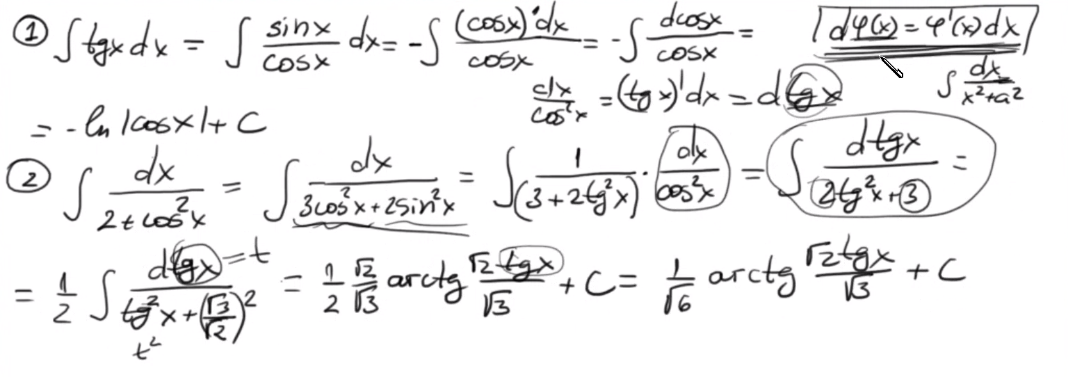 ① ∫ tgx dx = ∫ sinx/cosx dx = -∫ (cosx)'dx/cosx = -∫ dcosx/cosx = dφ(x) = φ'(x)dx
dx/cos²x = (tgx)'dx = d tgx ∫ dx/x²+a²
= -ln|cosx| + C
② ∫ dx/2+cos²x = ∫ dx/3cos²x+2sin²x = ∫ 1/(3+2tg²x) · dx/cos²x = ∫ dtgx/2tg²x+3 =
= 1/2 ∫ dtgx/tg²x+(√3/√2)² = 1/2 √2/√3 arctg √2 tgx/√3 + C = 1/√6 arctg √2tgx/√3 + C
= t
t²